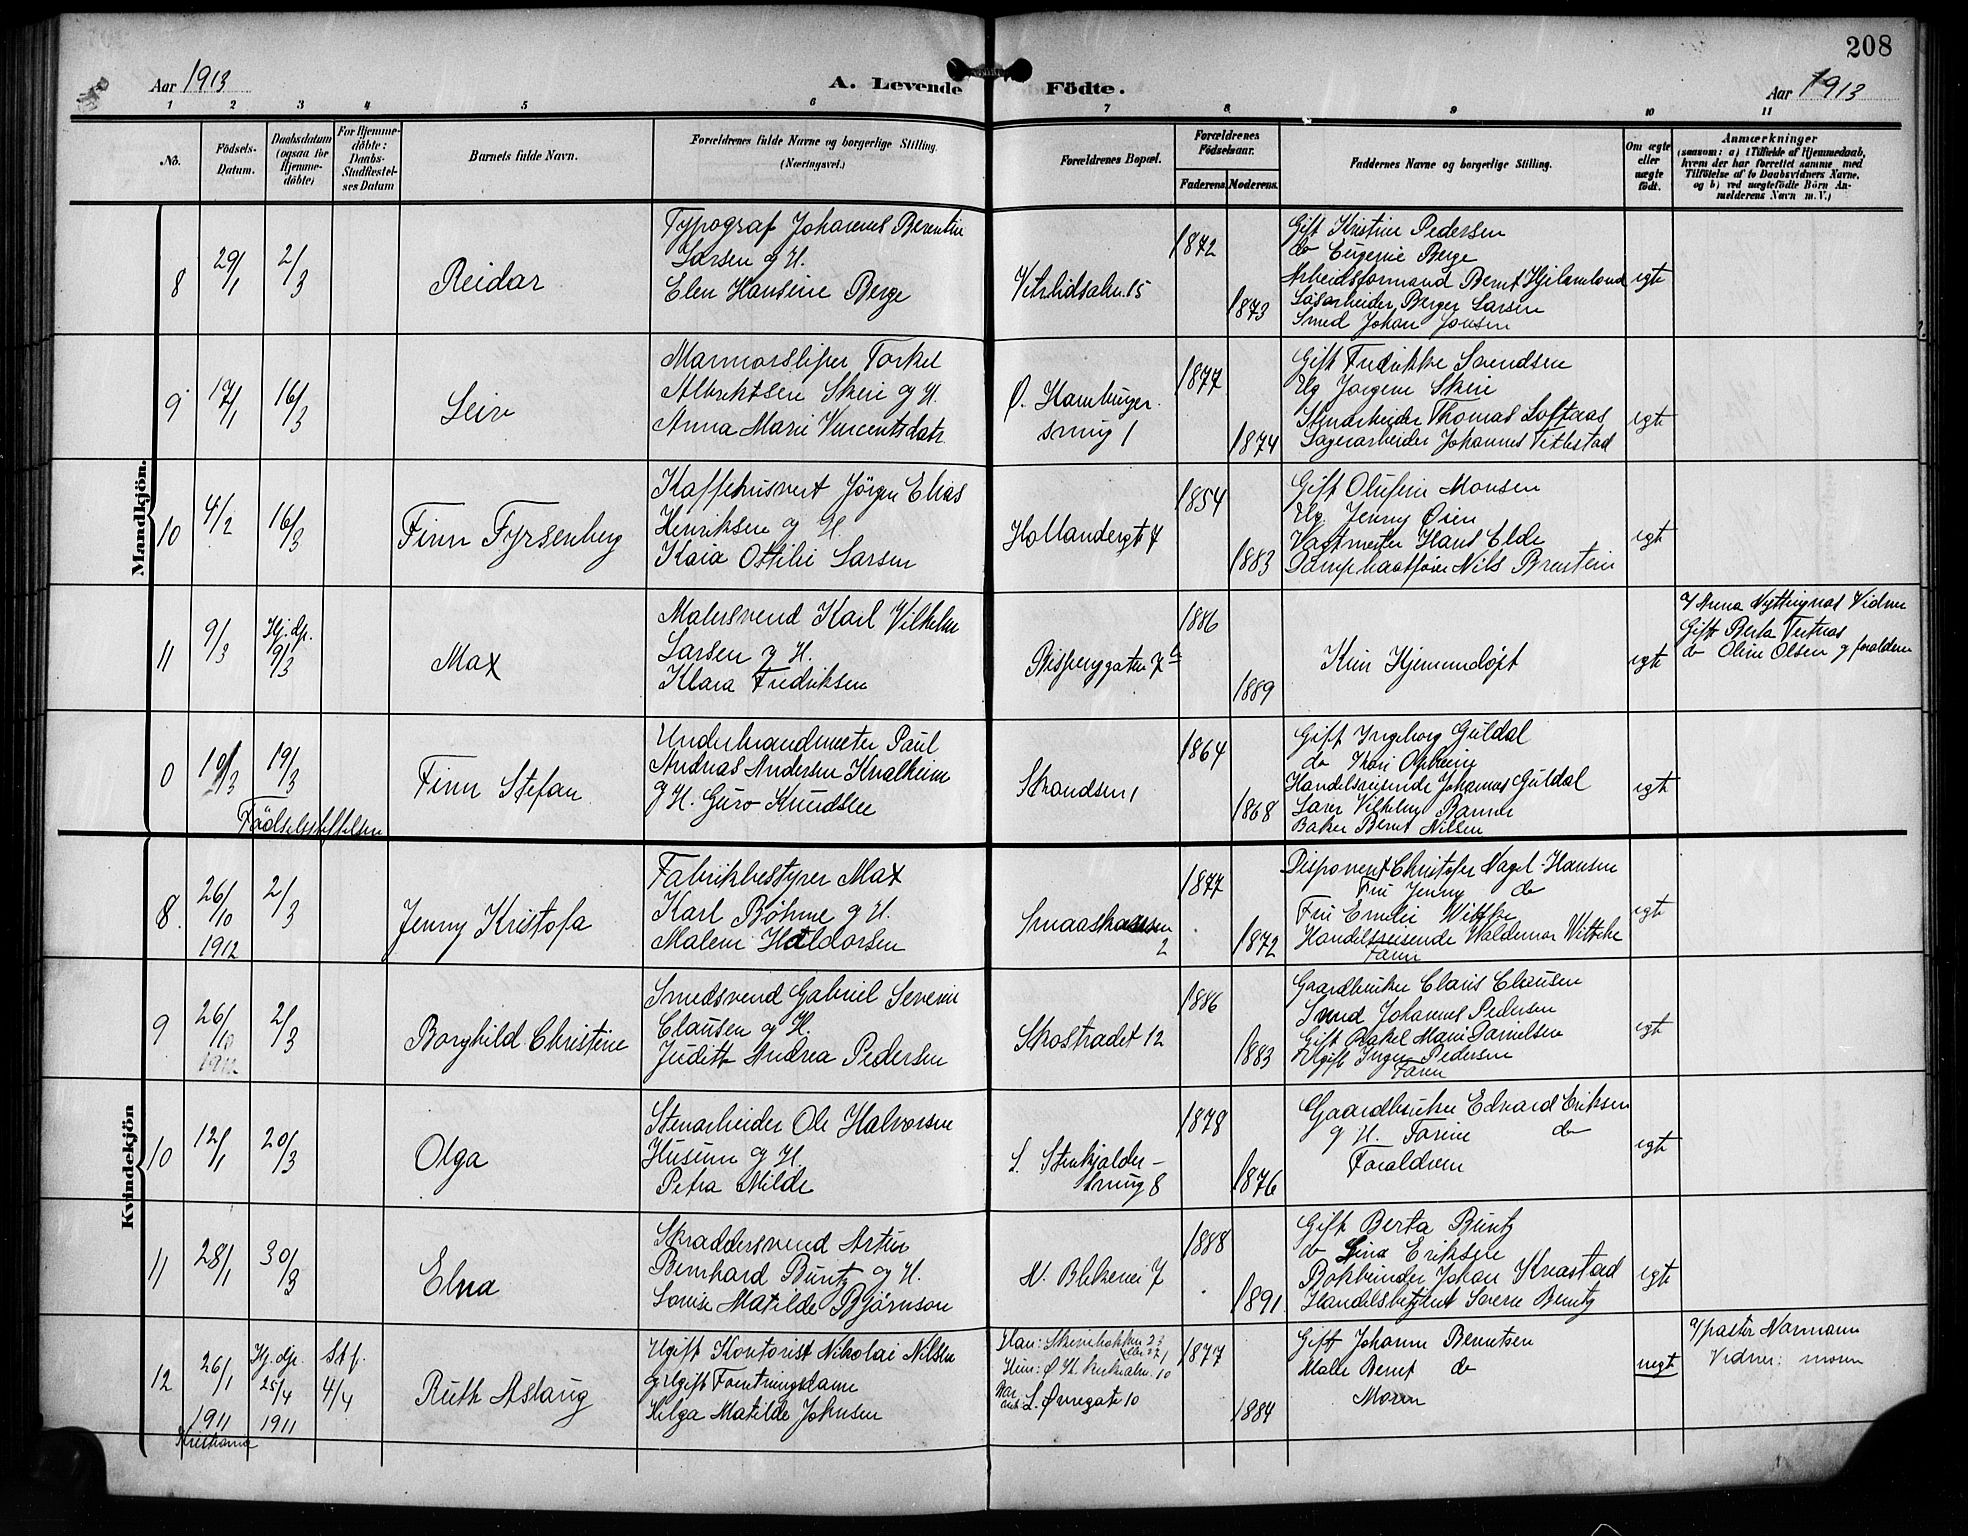 208
Aar 1913
A. Levende Födte.
Aar 1913
1 2 3 4 5 6 7 8 9 10 11
No.
Födsels-
Datum.
Daabsdatum
(ogsaa for
Hjemme-
döbte)
For Hjemme-
döbte:
Daabs-
Stadfestel-
ses Datum
Barnets fulde Navn.
Forældrenes fulde Navne og borgerlige Stilling.
(Næringsvei.)
Forældrenes Bopæl.
Forældrenes
Födselsaar.
Faderens. Moderens.
Faddernes Navne og borgerlige Stilling.
Om ægte
eller
uægte
födt.
Anmærkninger
(saasom: a) i Tilfælde af Hjemmedaab,
hvem der har forrettet samme med
Tilföielse af to Daabsvidners Navne,
og b) ved uægtefödte Börn An-
melderens Navn m. V.)
Mandkjön.
8
29/1
2/3
Reidar
Typograf Johannes Berentin
Larsen og H.
Elen Hansine Berge
1872
1873
Gift Kristine Pedersen
do Eugenie Berge
Arbeidsformand Bernt
Berger Larsen
Smed Johan Jonsen
egte
9
17/1
16/3
Leiv
Marmorsliper Torkel
Albriktsen Skeie og H.
Anna Marie Vincentsdatr.
Ø. Hamburger-
smug 1
1877
1874
Gift Fredrikke Svendsen
Ug Jørgine Skeie
Stenarbeider Thomas Loftaas
Lagerarbeider Johannes
egte
10
4/2
16/3
Finn Fyrsenberg
Kaffehusvert Jörgen Elias
Henriksen og H.
Kaia Ottilie Larsen
Hollendergt 7
1854
1883
Gift Olufine Monsen
Ug. Jenny Øien
Vagtmester Hans Elde
Dampbaatfører Nils
egte
11
9/3
Hj. dp.
9/3
Max
Malersvend Karl Vilhelm
Larsen og H.
Klara Fredriksen
1886
1889
Kun Hjemmedøpt
egte
Vidner
Gift Berta
do Oline Olsen og forældrene
0
10/3
19/3
Finn Stefan
Underbrandmester Paul
Andreas Andersen Knalheim
og H. Guro Knudsen
Skandsen 1
1864
1868
Gift Ingeborg Guldal
do Kari
Handelsreisende Johannes Guldal
Vilhelm
Baker Bernt Nilsen
egte
Kvindekjön
8
26/10
1912
2/3
Jenny Kristofa
Fabrikbestyrer Max
Karl Böhme og H.
Malene Haldorsen
2
1877
1872
Disponent Christofer Nagel-Hansen
Fru Jenny do
Fru Emelie Wittke
Handelsreisende Waldemar Wittke
Faren
egte
9
26/10
1912
2/3
Borghild Christine
Smedsvend Gabriel Severin
Clausen og H.
Judith Andrea Pedersen
Skostrædet 12
1886
1883
Gaardbruker Claus Clausen
Svend Johannes Pedersen
Gift Rakel Marie Danielsen
Ugift Inger Pedersen
Faren
egte
10
12/1
20/3
Olga
Stenarbeider Ole Halvorsen
Husum og H.
Petra Milde
L. Stenkjelder-
smug 8
1878
1876
Gaardbruker Edvard Eriksen
og H. do
Forældrene
egte
11
28/1
30/3
Elna
Skraddersvend Artur
Bernhard Buntz og H.
Louise Matilde Björnson
N. Blekevei 7
1888
1891
Gift Berta Buntz
do Lina Eriksen
Bokbinder Johan
Handelsbetjent Buntz
egte
12
26/1
1911
Kristiania
Hj. dp.
25/4
1911
Stf.
4/4
Ruth Aslaug
Ugift Kontorist Nikolai Nilsen
og Ugift Forretningsdame
Helga Matilde Johnsen
L. Øvregate 10
1877
1884
Gift Johanne Berntsen
Bernt do
Moren
uegte
v/ pastor Normann
Vidner: moren